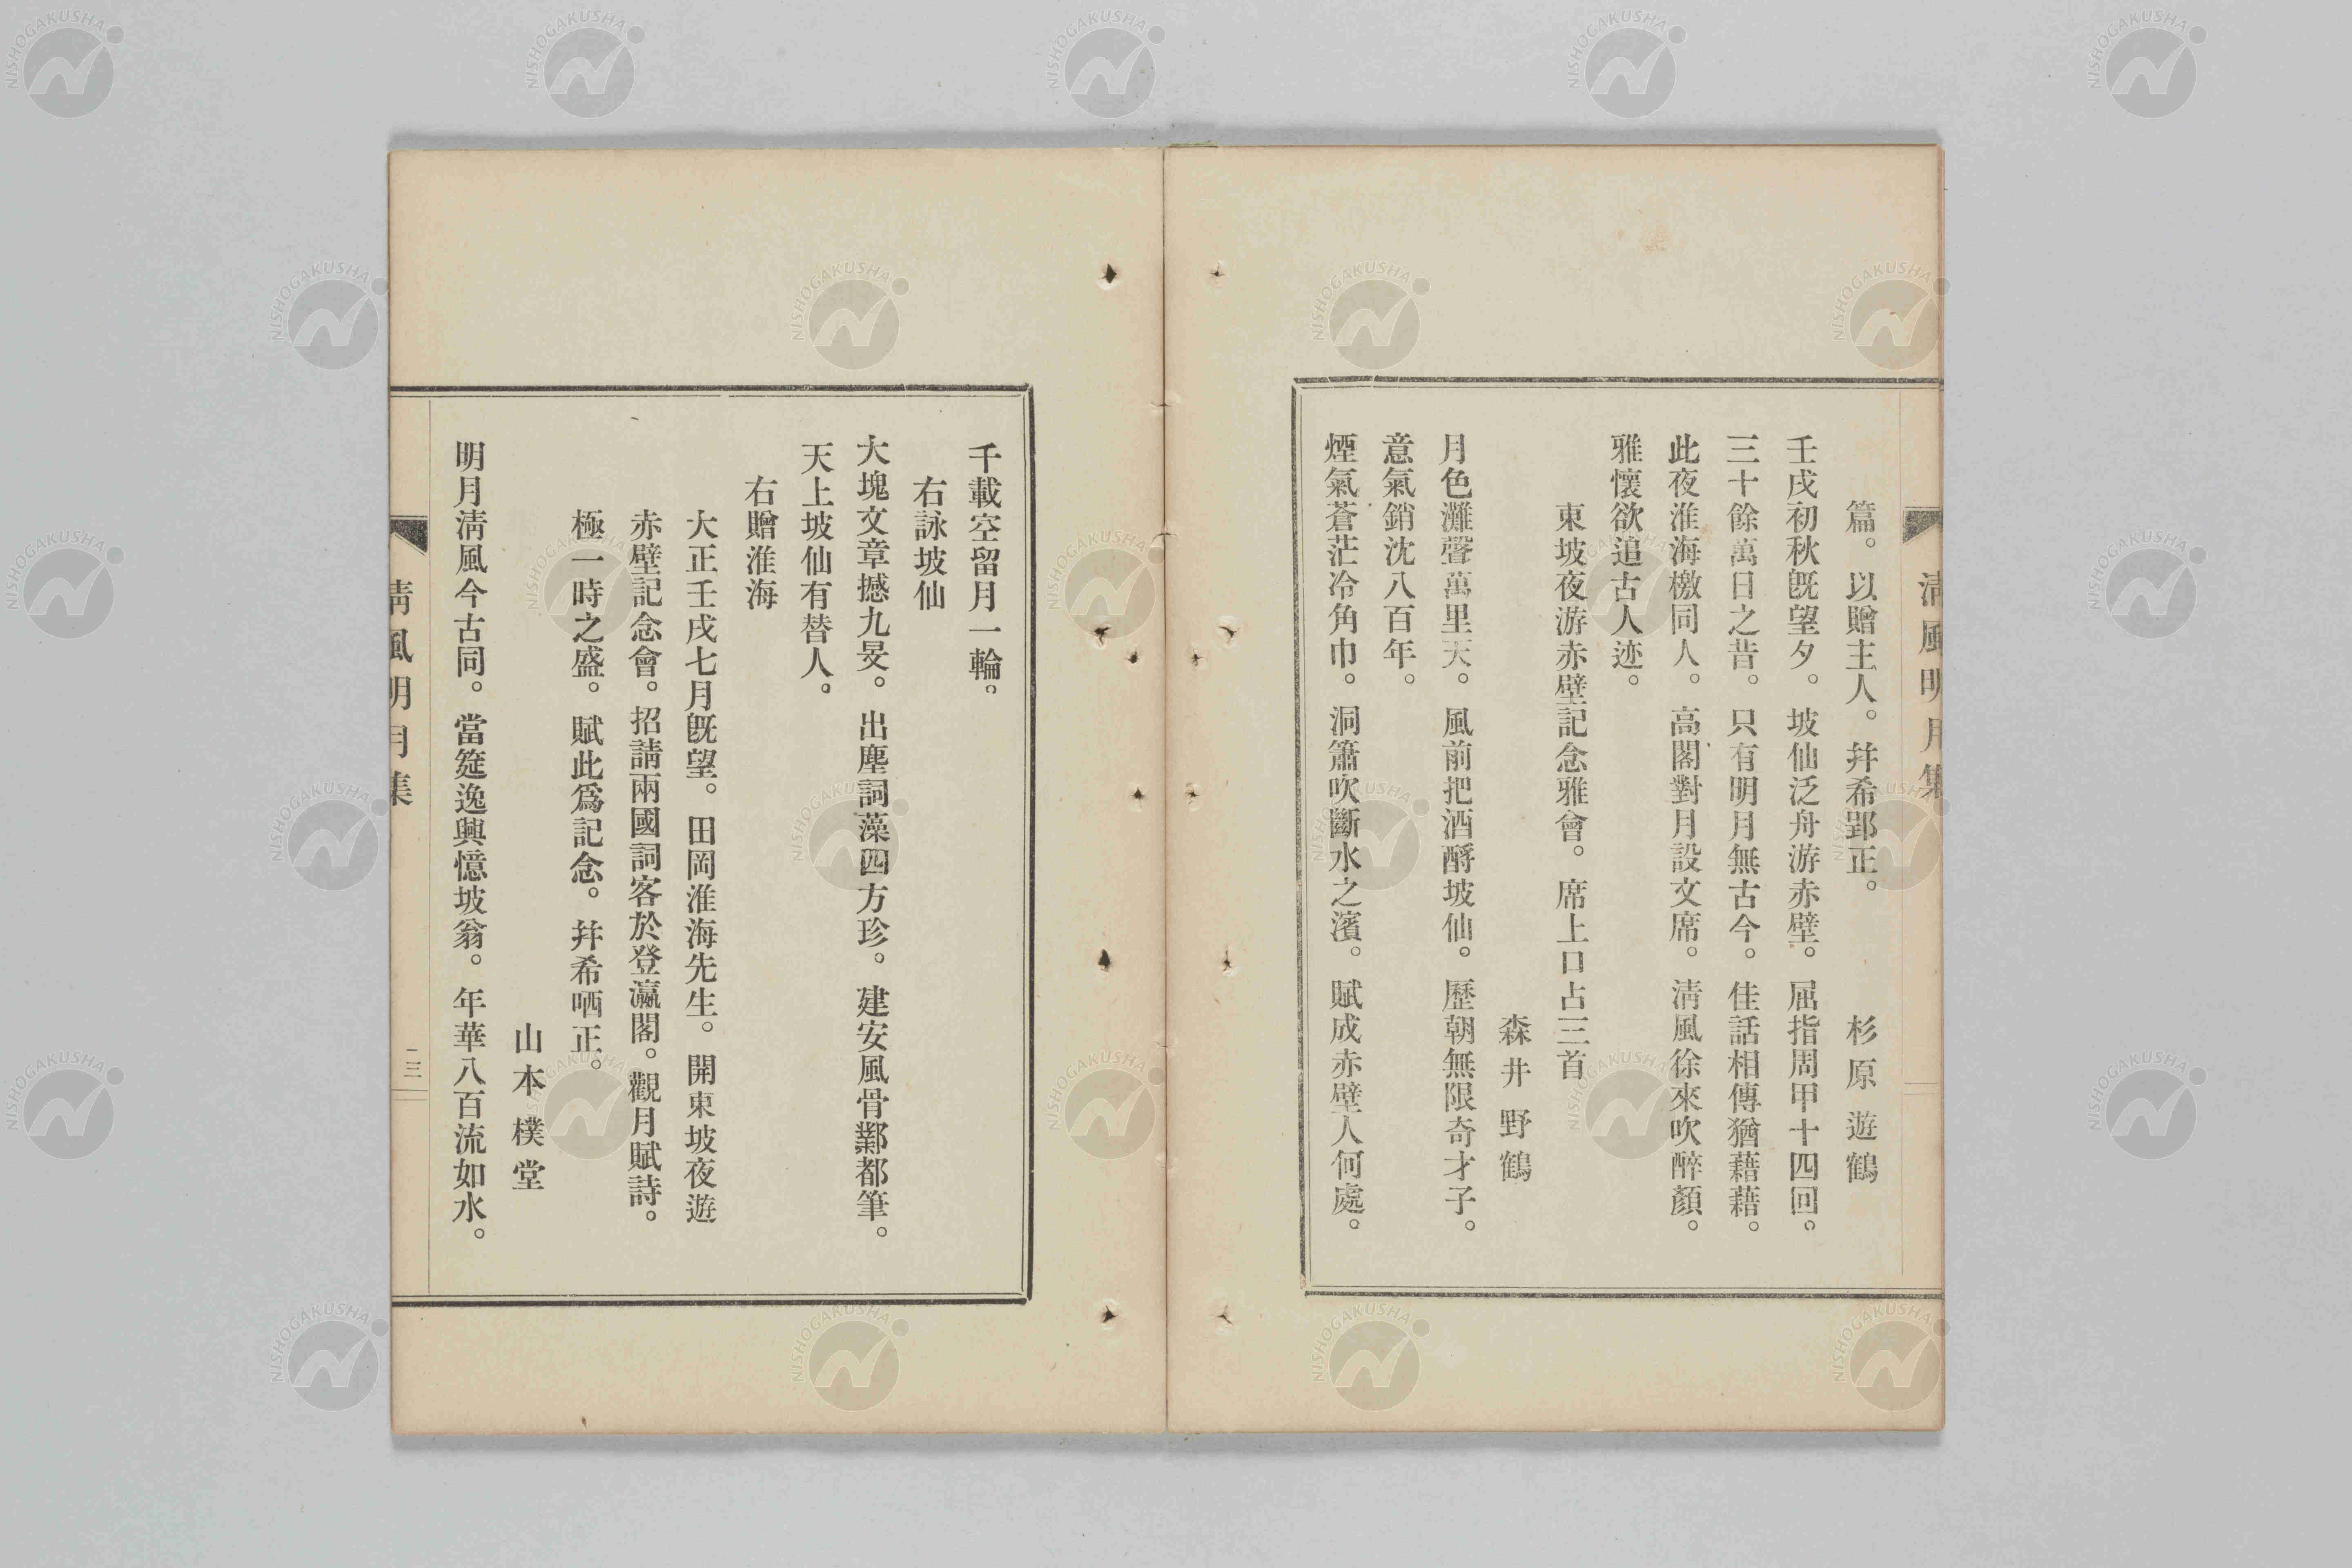 清風明月集
篇。以贈主人。幷希郢正。 杉原遊鶴
壬戌初秋旣望夕。坡仙泛舟游赤壁。屈指周甲十四回。
三十餘萬日之昔。只有明月無古今。佳話相傳猶藉藉。
此夜淮海檄同人。高閣對月設文席。淸風徐來吹醉顏。
雅懷欲追古人迹。
東坡夜游赤壁記念雅會。席上口占三首
森井野鶴
月色灘聲萬里天。風前把酒酹坡仙。歷朝無限奇才子。
意氣銷沈八百年。
煙氣蒼茫冷角巾。洞簫吹斷水之濱。賦成赤壁人何處。
千載空留月一輪。
右詠坡仙
大塊文章撼九旻。出塵詞藻四方珍。建安風骨鄴都筆。
天上坡仙有替人。
右贈淮海
大正壬戌七月旣望。田岡淮海先生。開東坡夜遊
赤壁記念會。招請兩國詞客於登瀛閣。觀月賦詩。
極一時之盛。賦此爲記念。幷希哂正。
山本樸堂
明月淸風今古同。當筵逸興憶坡翁。年華八百流如水。
淸風明月集
二三
NISHOGAKUSHA